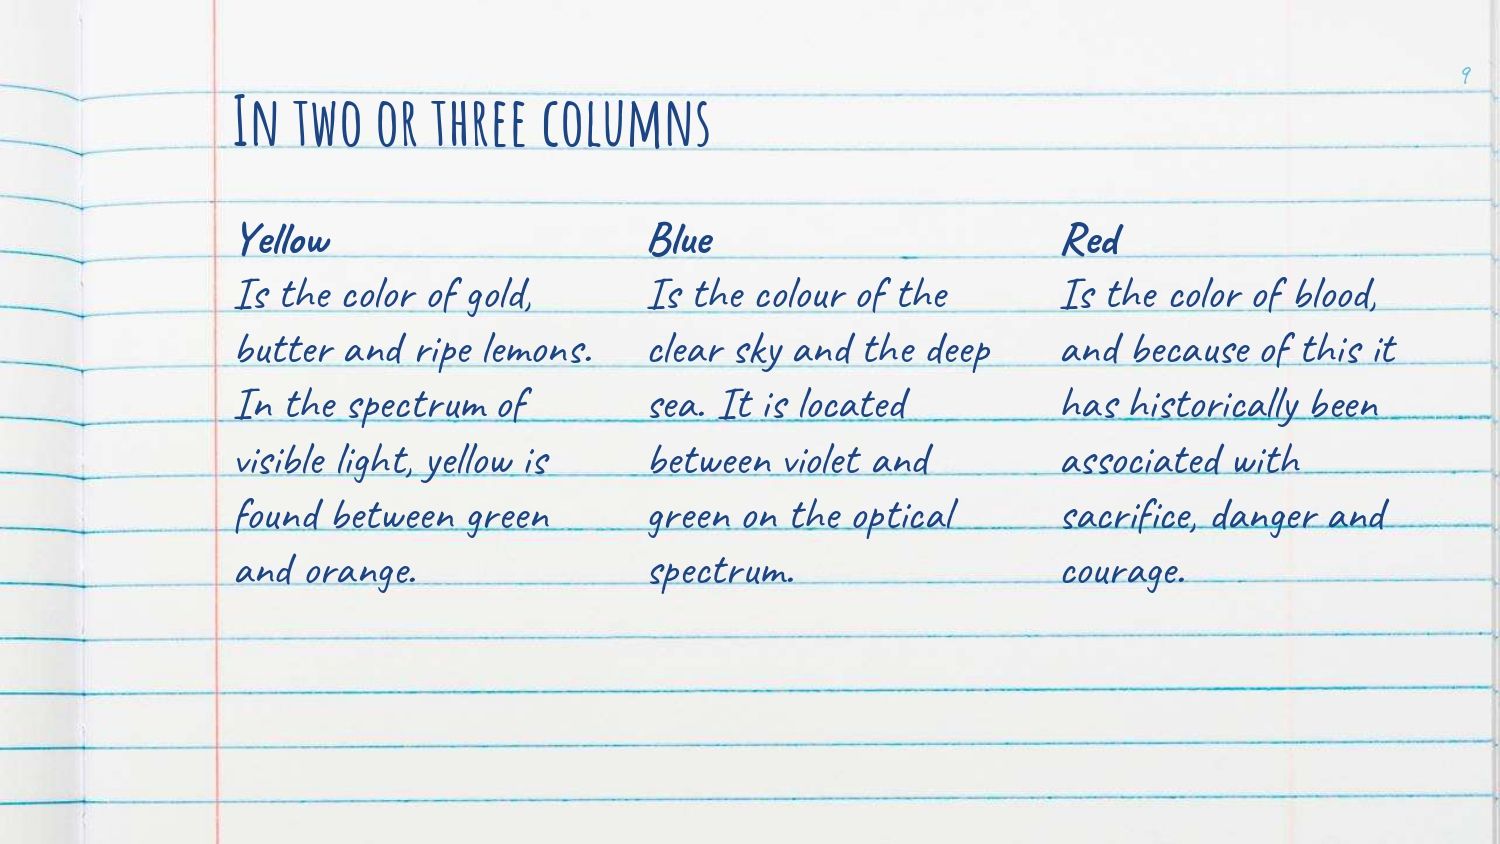 9
In two or three columns
Yellow
Is the color of gold,
butter and ripe lemons.
In the spectrum of
visible light, yellow is
found between green
and orange.
Blue
Is the colour of the
clear sky and the deep
sea. It is located
between violet and
green on the optical
spectrum.
Red
Is the color of blood,
and because of this it
has historically been
associated with
sacrifice, danger and
courage.